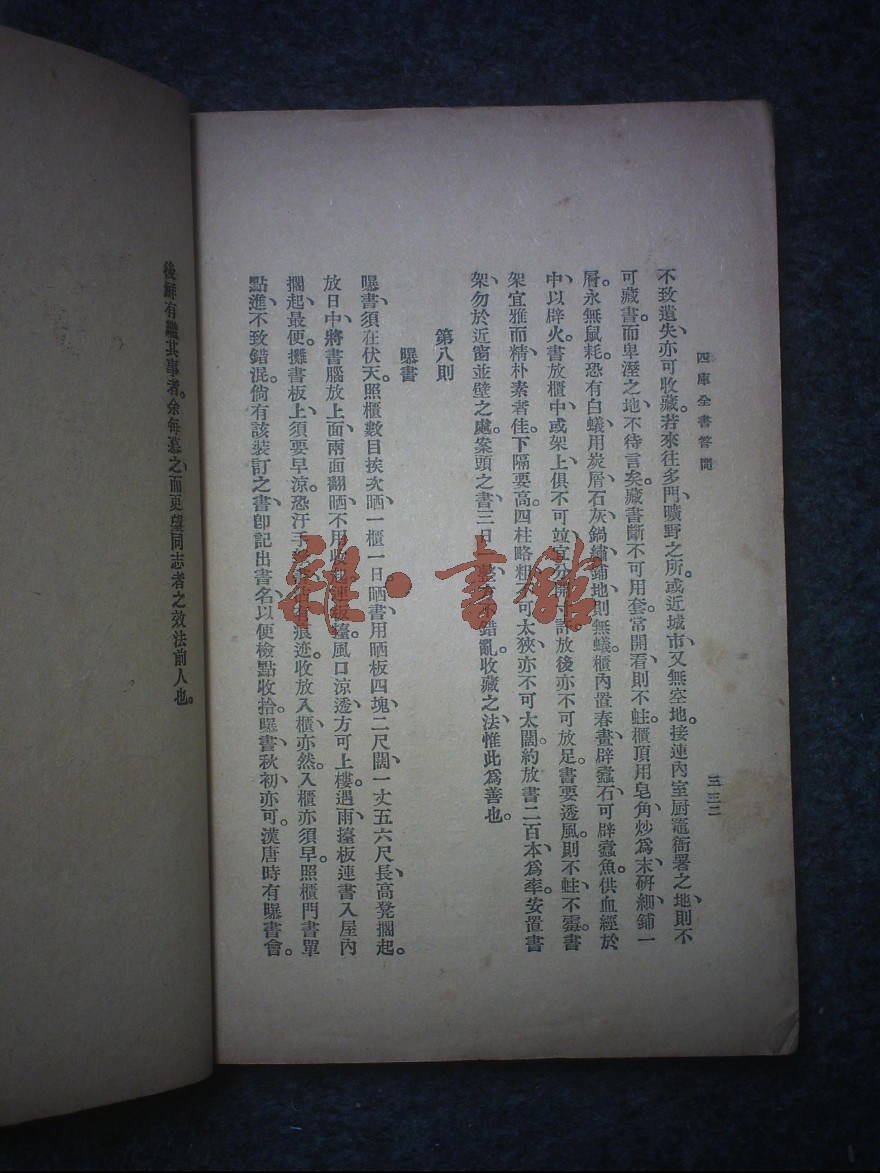 四庫全書答問
三三二
不致遺失、亦可收藏。若來往多門、曠野之所、或近城市、又無空地。接連內室厨竈衙署之地、則不
可藏書。而卑溼之地、不待言矣。藏書斷不可用套、常開看則不蛀。櫃頂用皂角炒爲末、研細鋪一
層、永無鼠耗。恐有白蟻、用炭屑石灰鍋繡鋪地、則無蟻。櫃內置春畫辟蠹石、可辟蠹魚。供血經於
中、以辟火。書放櫃中、或架上、俱不可竝、宜分開寸許、放後亦不可放足。書要透風、則不蛀不霉。書
架宜雅而精、朴素者佳。下隔要高。四柱略粗、不可太狹、亦不可太闊。約放書二百本爲率。安置書
架、勿於近窗並壁之處。案頭之書、三日一整、方不錯亂。收藏之法、惟此爲善也。
第八則
曝書
曝書須在伏天。照櫃數目挨次晒、一櫃一日。晒書用晒板四塊、二尺闊、一丈五六尺長、高凳擱起。
放日中、將書腦放上面、兩面翻晒、不用收起、連板擡風口涼透、方可上樓。遇雨、擡板連書入屋內
擱起、最便。攤書板上、須要早涼。恐汗手拏書、沾有痕迹。收放入櫃亦然。入櫃亦須早。照櫃門書單
點進、不致錯混。倘有該裝訂之書、卽記出書名、以便檢點收拾。曝書秋初亦可。漢唐時有曝書會。
後鮮有繼其事者。余每慕之、而更望同志者之效法前人也。
雜·書館